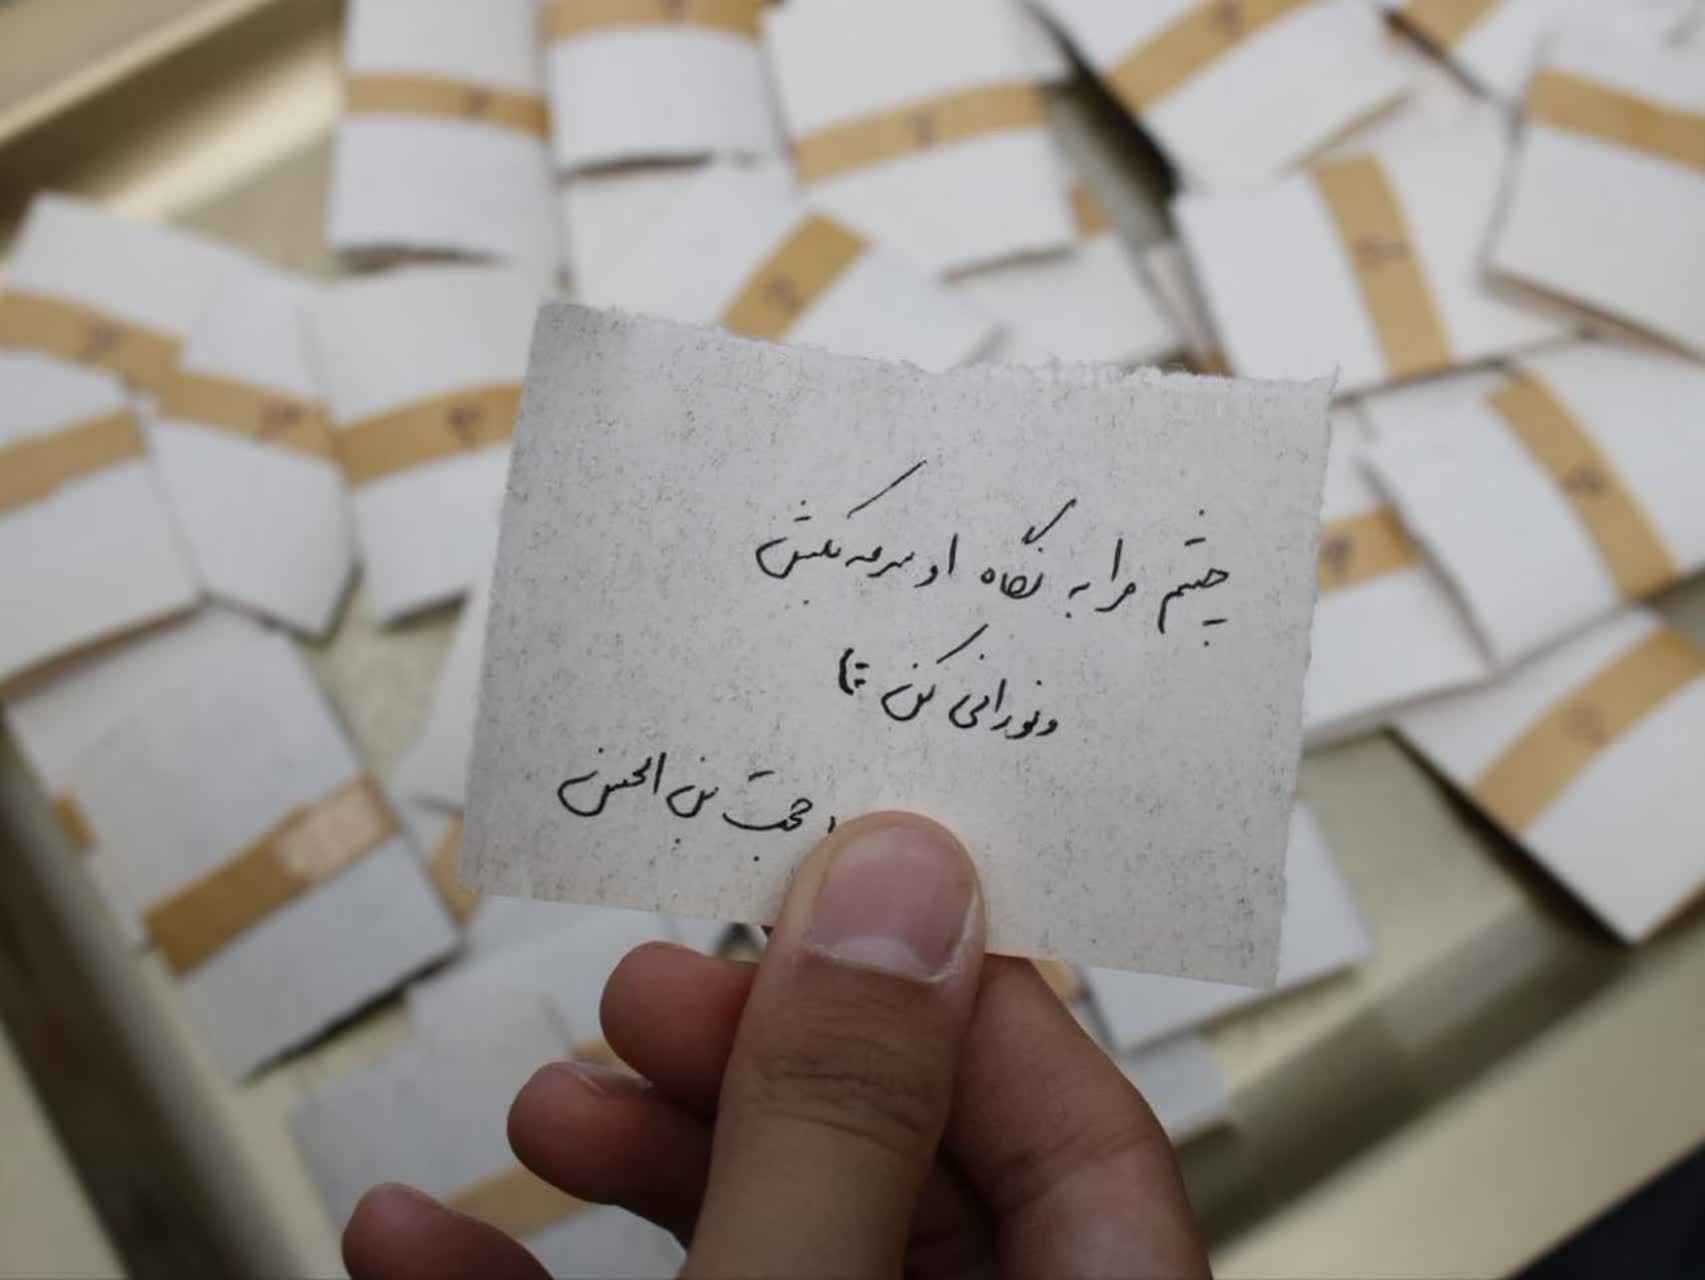 چشم مرا به نگاه او سرمه بکش
و نورانی کن تما
حجت بن الحسن